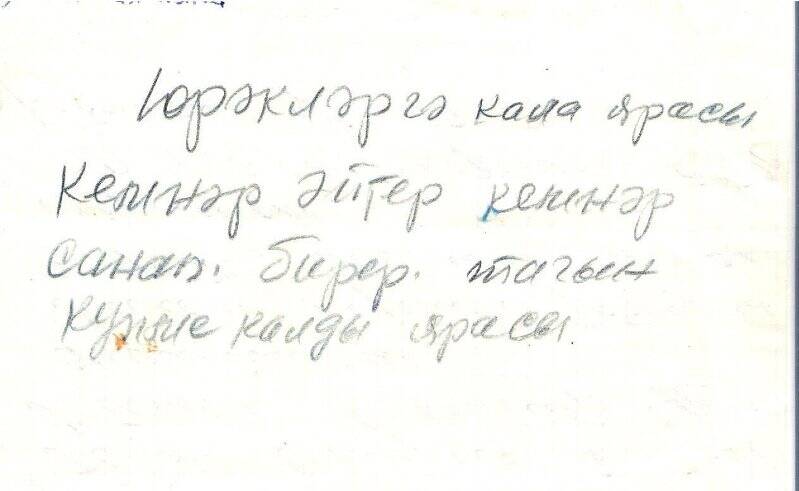 Юрәкләргә кала ярасы
Кемнәр әйтер кемнәр
санап. бирер. тагын
купме калды ярасы